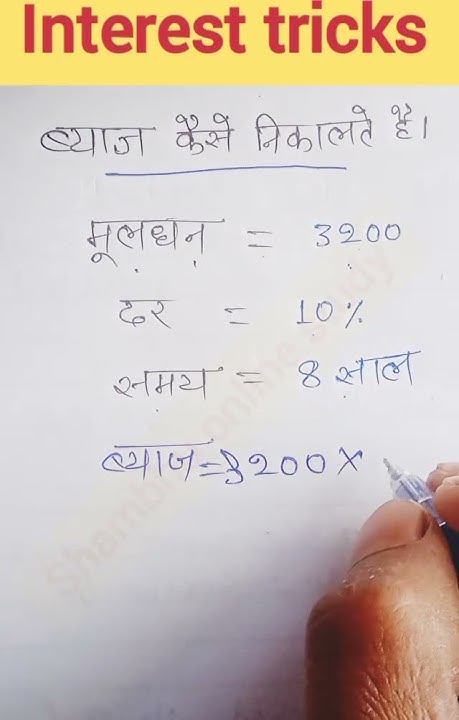 Interest tricks
ब्याज कैसे निकालते है।
मूलधन = 3200
दर = 10%
समय = 8 साल
ब्याज=3200×
Shambhu online study